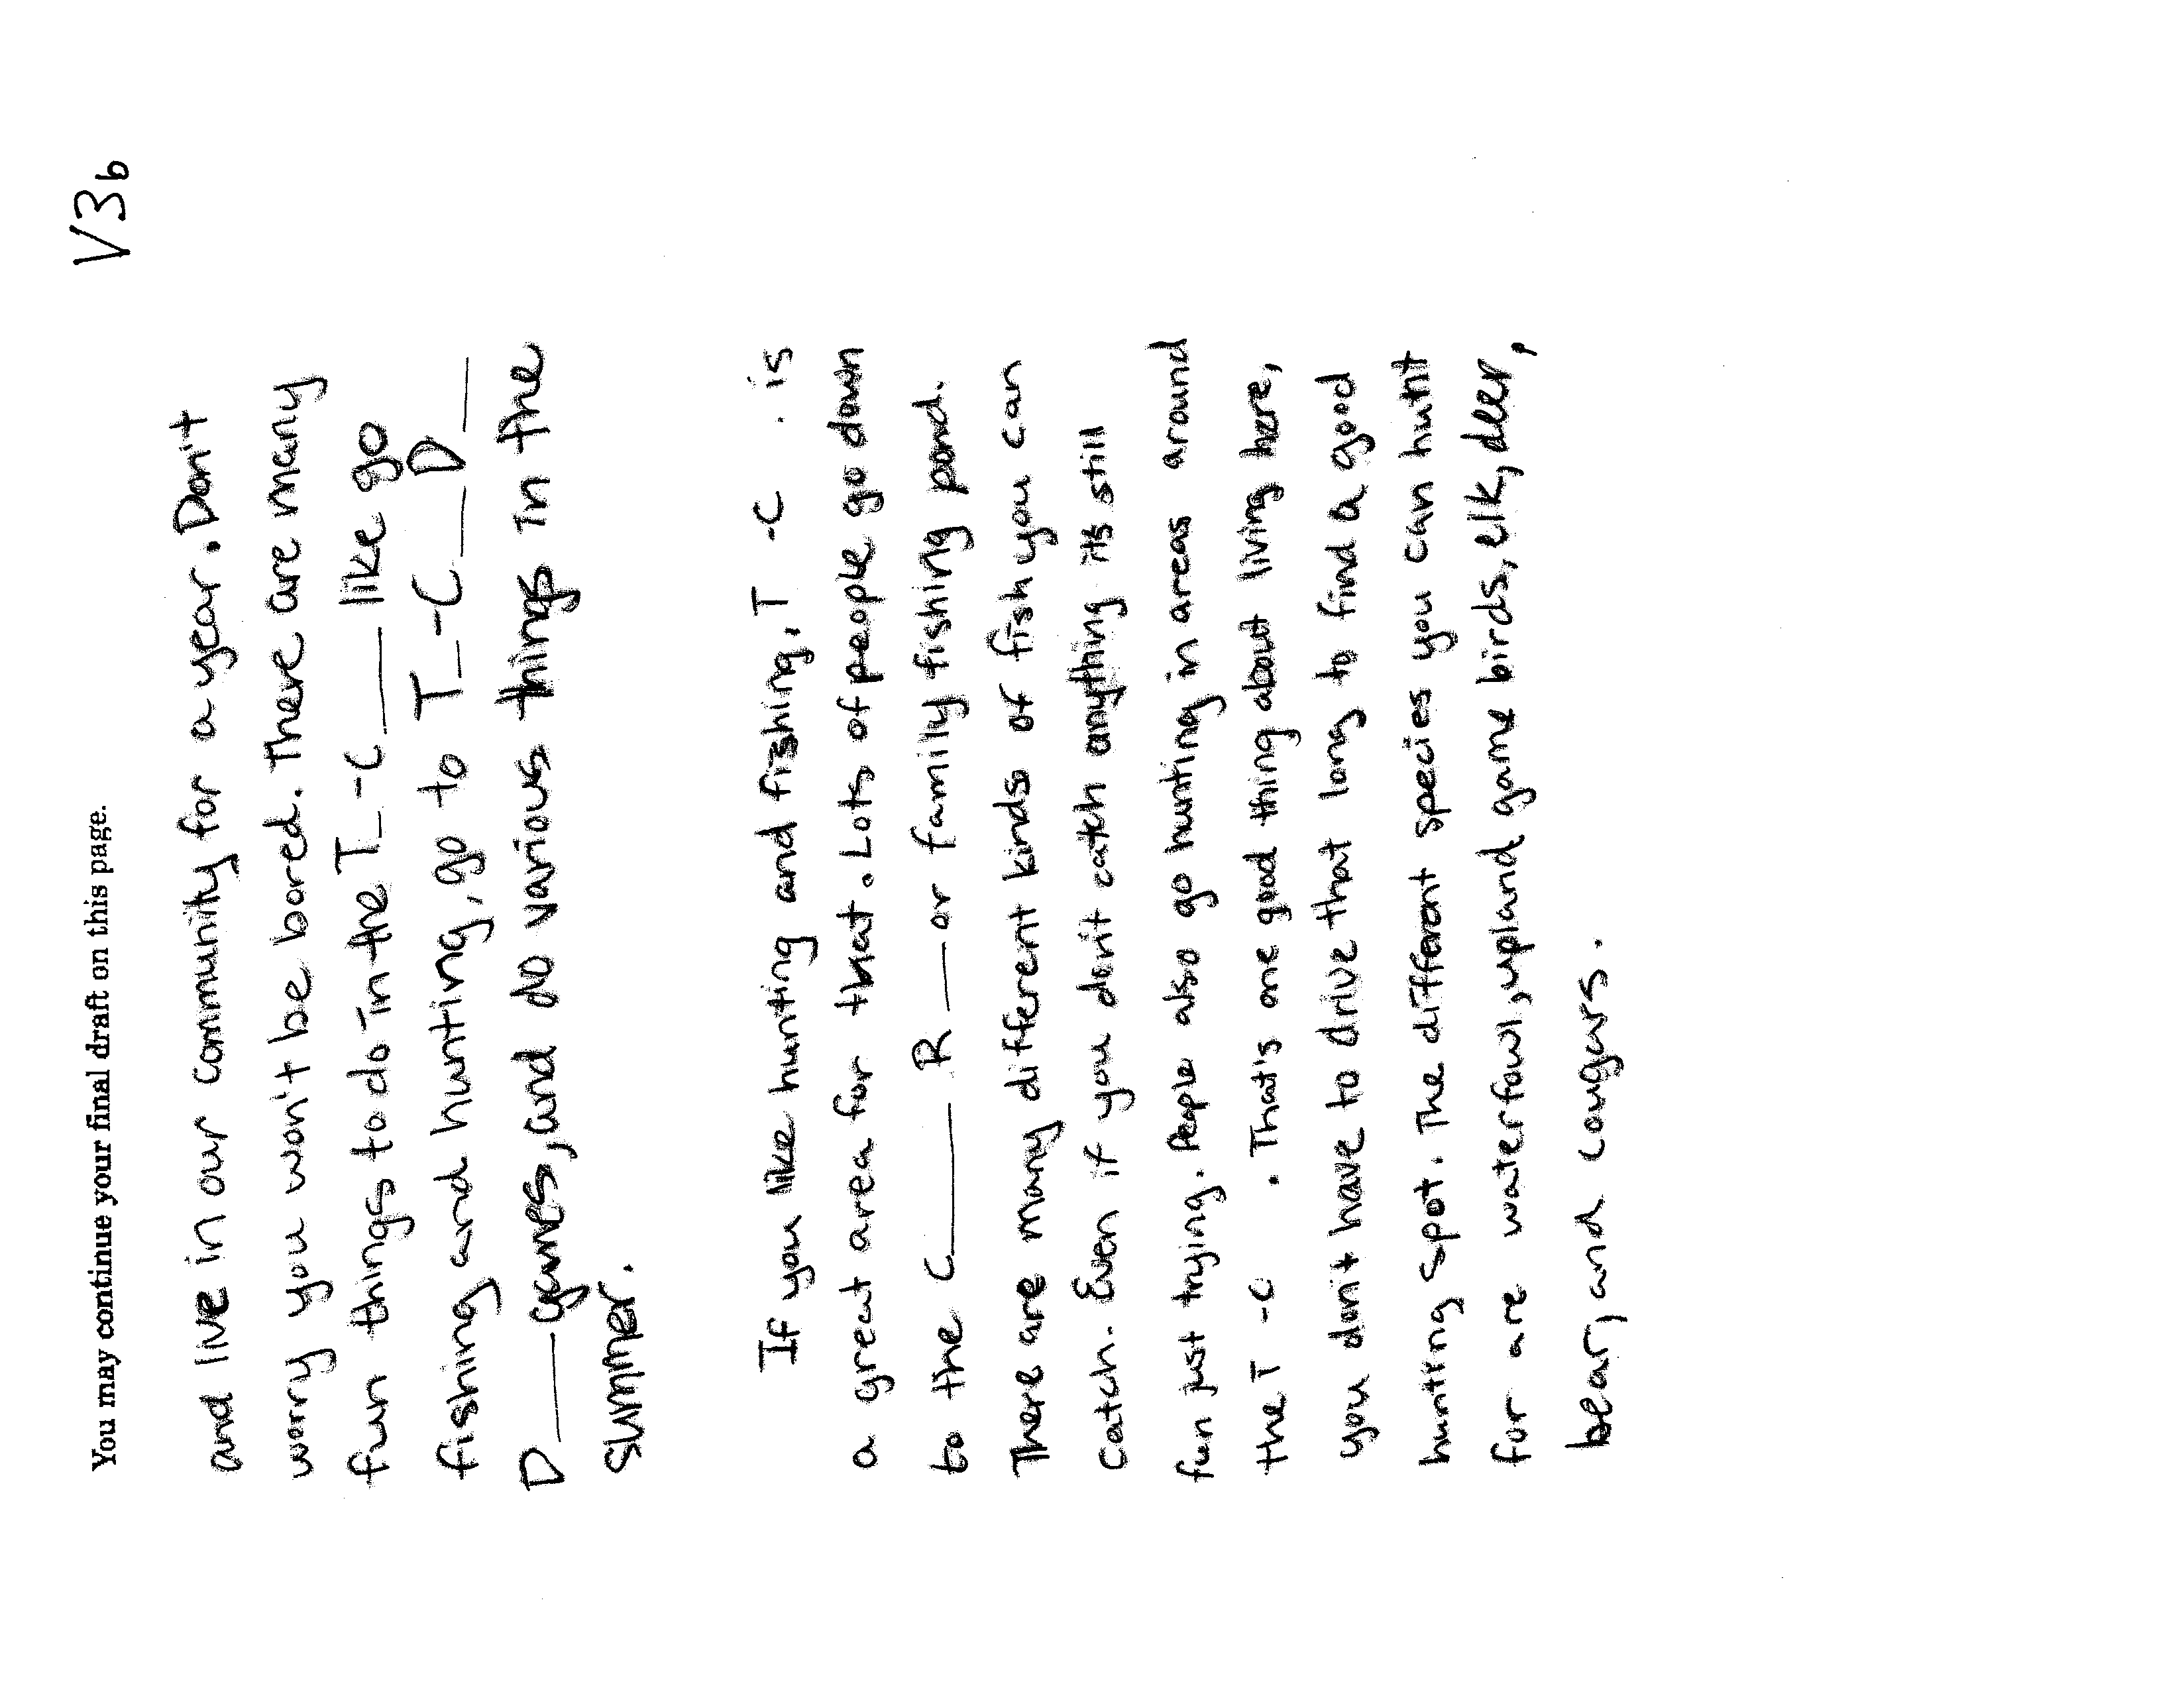 You may continue your final draft on this page.
V3b
and live in our community for a year. Don't
worry you won't be bored. There are many
fun things to do in the T_-C___ like go
fishing and hunting, go to T_-C__D__
D___games, and do various things in the
summer.
If you like hunting and fishing, T -C . is
a great area for that. Lots of people go down
to the C____ R__ or family fishing pond.
There are many different kinds of fish you can
catch. Even if you don't catch anything its still
fun just trying. People also go hunting in areas around
the T -C . That's one good thing about living here,
you don't have to drive that long to find a good
hunting spot. The different species you can hunt
for are waterfowl, upland game birds, elk, deer,
bear, and cougars.